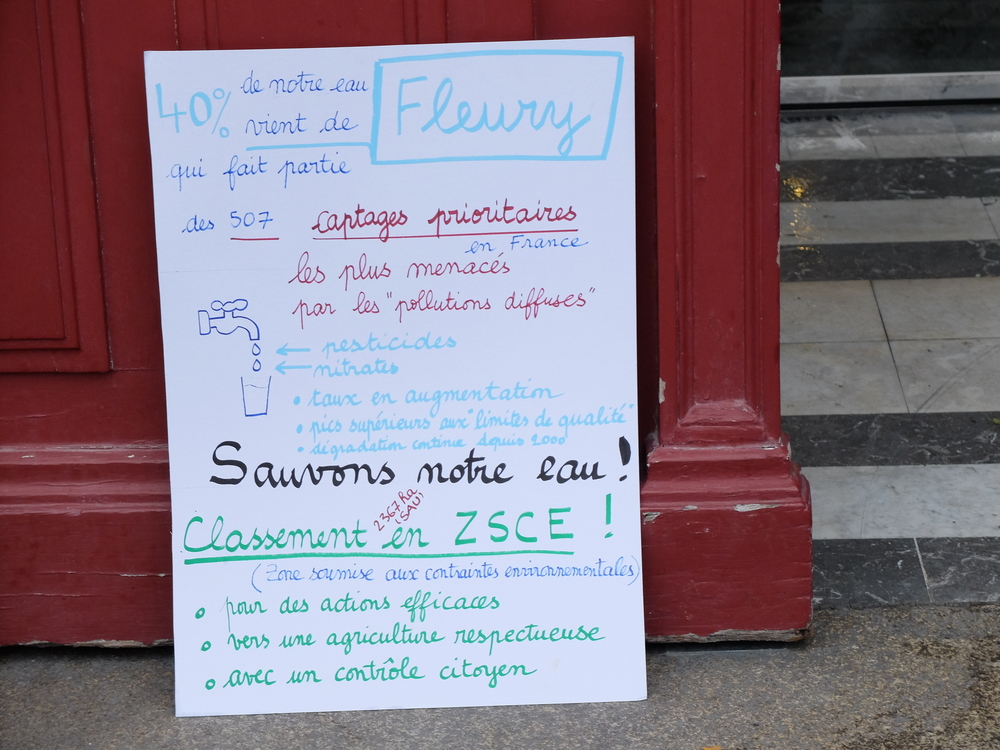 40% de notre eau
vient de Fleury
qui fait partie
des 507 captages prioritaires
en France
les plus menacés
par les "pollutions diffuses"
← pesticides
← nitrates
• taux en augmentation
• pics supérieurs aux "limites de qualité"
• dégradation continue depuis 2000
Sauvons notre eau !
2367 ha
(SAU)
Classement en ZSCE !
(Zone soumise aux contraintes environnementales)
o pour des actions efficaces
o vers une agriculture respectueuse
o avec un contrôle citoyen